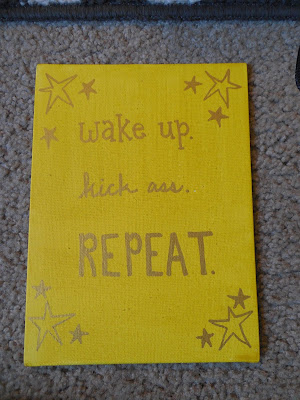 wake up.
kick ass.
REPEAT.